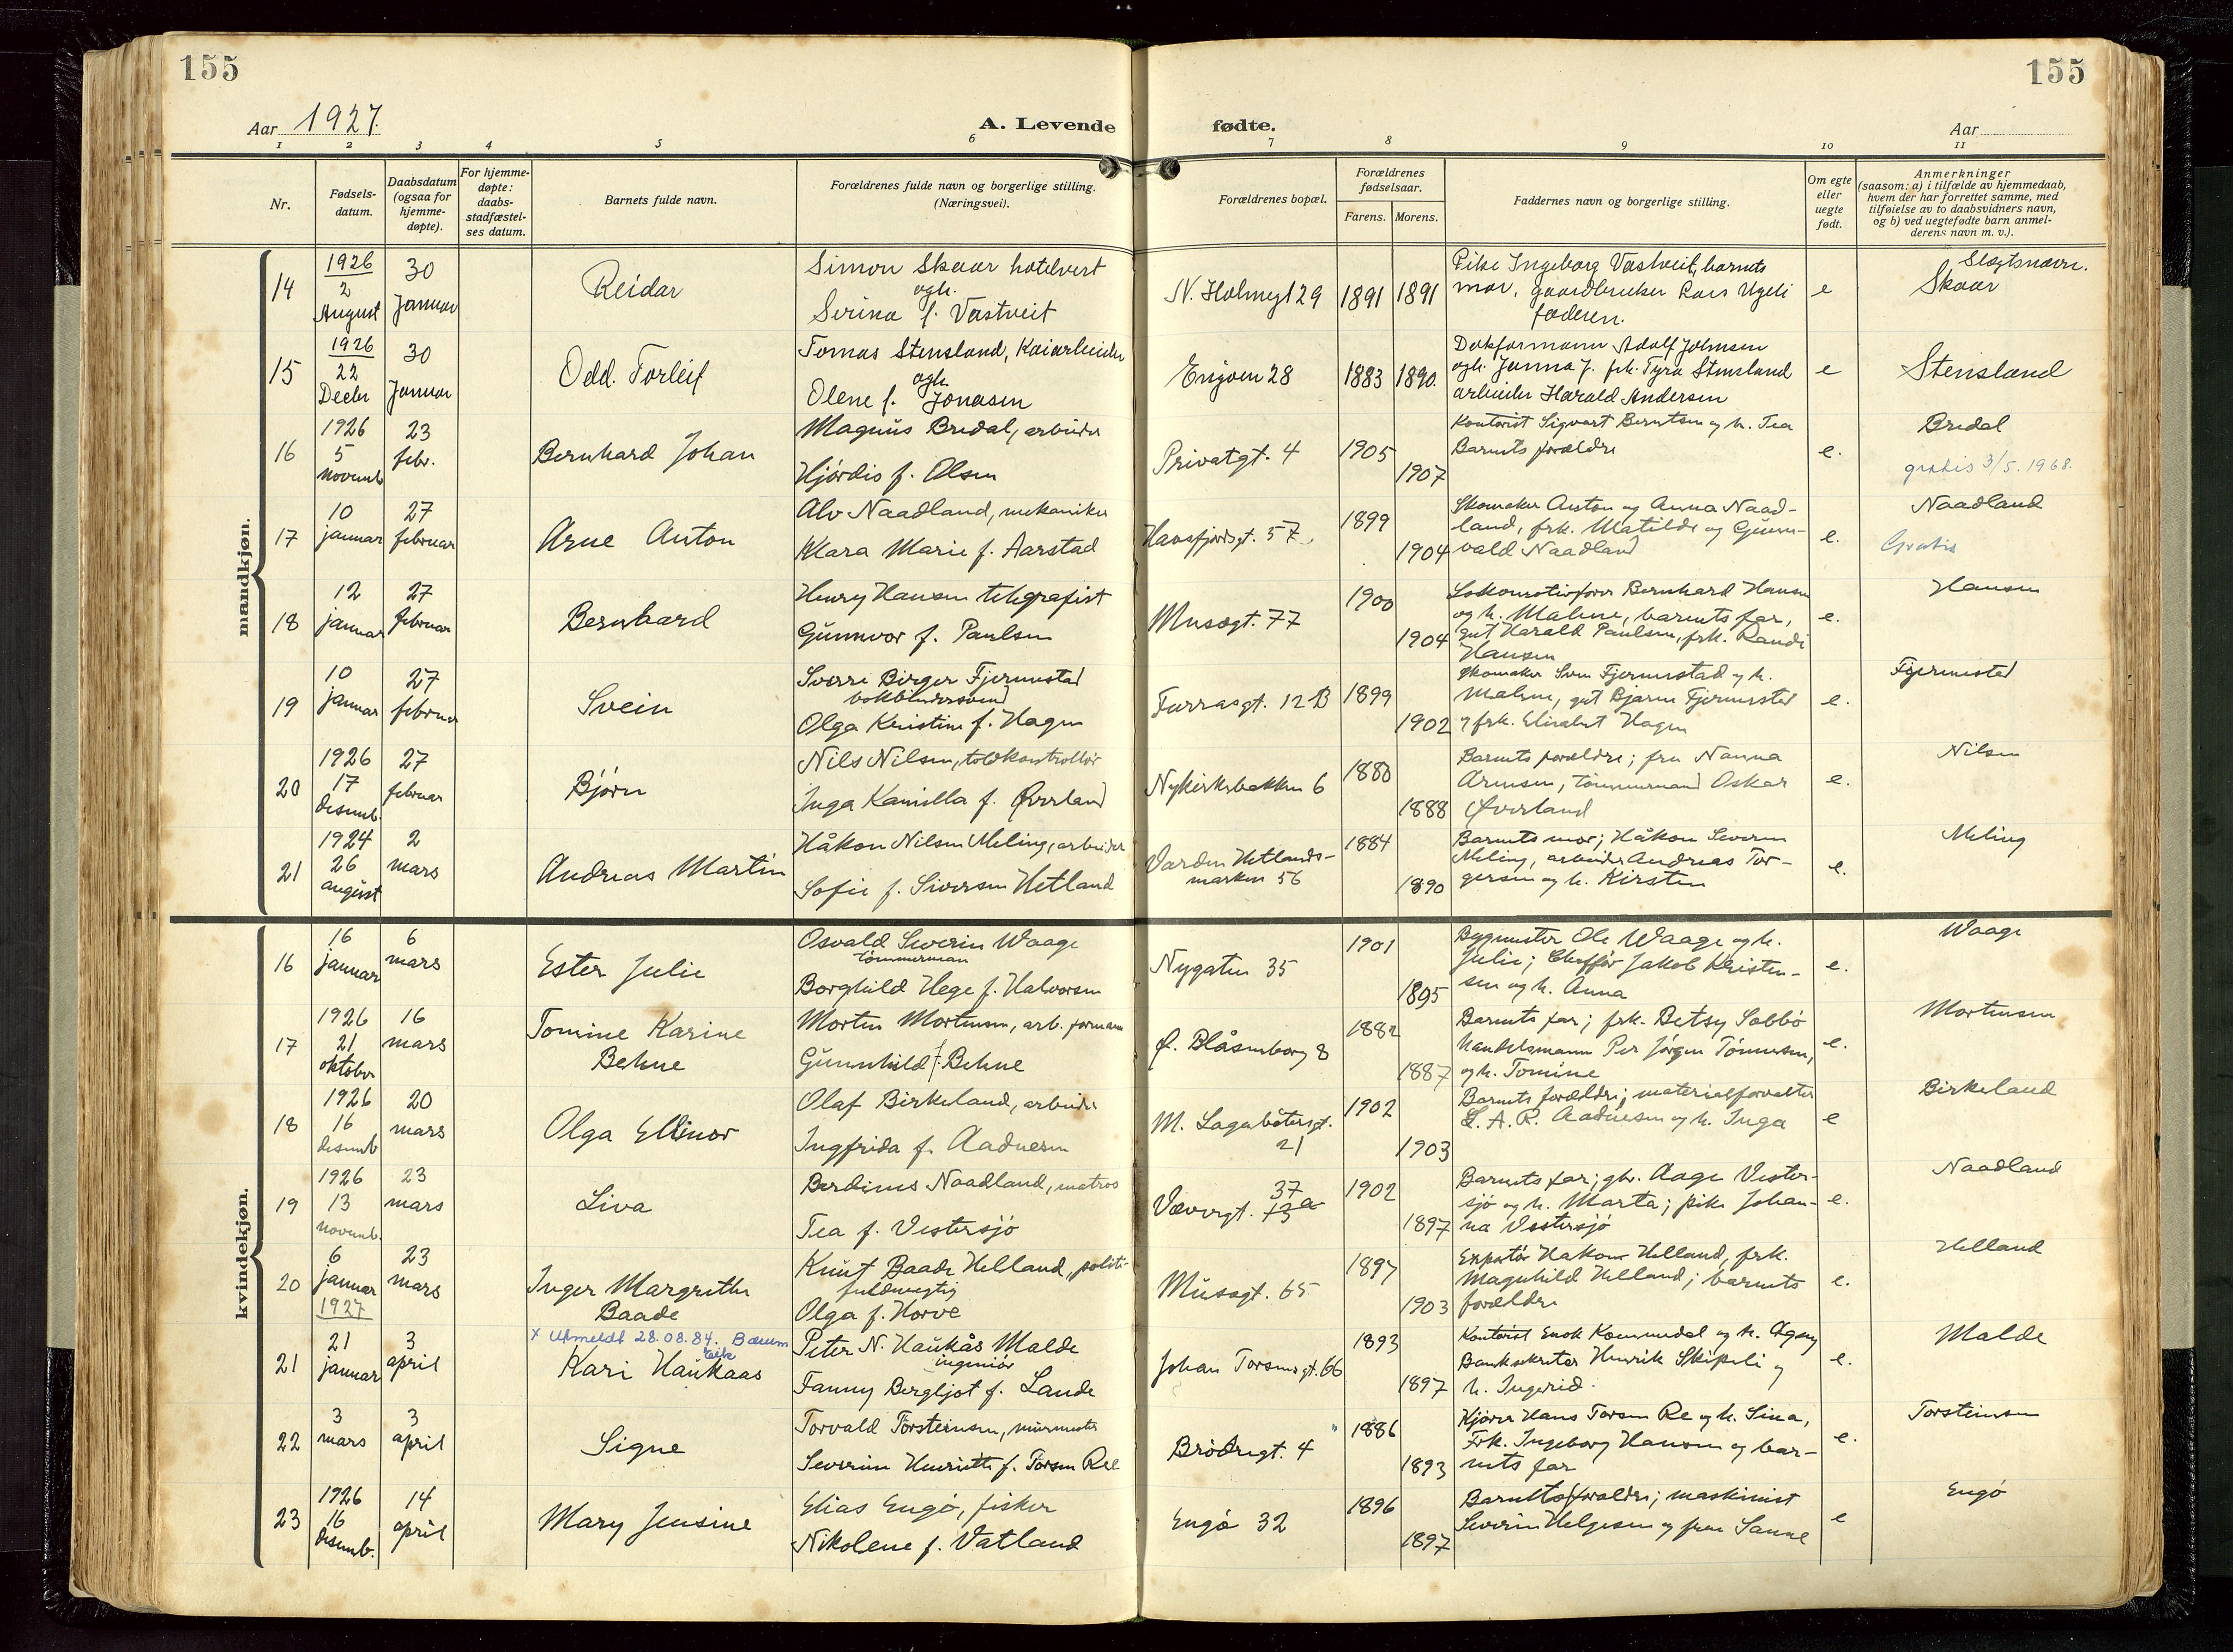 155
155
Aar 1927.
A. Levende
fødte.
Aar
1 2 3 4 5 6 7 8 9 10 11
Nr.
Fødsels-
datum.
Daabsdatum
(ogsaa for
hjemme-
døpte).
For hjemme-
døpte:
daabs-
stadfæstel-
ses datum.
Barnets fulde navn.
Forældrenes fulde navn og borgerlige stilling.
(Næringsvei).
Forældrenes bopæl.
Forældrenes
fødselsaar.
Farens. Morens.
Faddernes navn og borgerlige stilling.
Om egte
eller
uegte
født.
Anmerkninger
(saasom: a) i tilfælde av hjemmedaab,
hvem der har forrettet samme, med
tilføielse av to daabsvidners navn,
og b) ved uegtefødte barn anmel-
derens navn m. v.).
mandkjøn.
14
1926
2
August
30
Januar
Reidar
Simon Skaar hotelvert
ogh.
Serina f. Vastveit
N. Holmegt 29
1891 1891
Pike Ingeborg Vastveit, barnets
mor, gaardbruker Lars Ugeli
faderen.
e
Slegtsnavn.
Skaar
15
1926
22
Decbr
30
Januar
Odd. Torleif
Tomas Stensland, Kaiarbeider
ogh.
Olene f. Jonasen
Engøen 28
1883 1890.
Dekformann Adolf Johnsen
ogh. Janna J. frk. Tyra Stensland
arbeider Harald Andersen
e
Stensland
16
1926
5
novemb
23
febr.
Bernhard Johan
Magnus Bredal, arbeider
Hjørdis f. Olsen
Privatgt. 4
1905
1907
Kontorist Sigvart Berntsen og h. Tea
Barnets forældre
e.
Bredal
gratis 3/5. 1968.
17
10
januar
27
februar
Arne Anton
Alv Naadland, mekaniker
Klara Marie f. Aarstad
Havsfjordsgt. 57
1899
1904
Skomaker Anton og Anna Naad-
land, frk. Matilde og Gunn-
vald Naadland
e.
Naadland
Gratis
18
12
januar
27
februar
Bernhard
Henry Hansen telegrafist
Gunnvor f. Paulsen
Musegt. 77
1900
1904
Lokomotivfører Bernhard Hansen
og h. Malene, barnets far,
gut Harald Paulsen, frk. Randi
Hansen
e.
Hansen
19
10
januar
27
februar
Svein
Sverre Birger Fjermestad
bokbindersvend
Olga Kristine f. Hagen
Furrasgt. 12 B
1899
1902
Skomaker Sven Fjermestad og h.
Malene, gut Bjarne Fjermestad
og frk. Elisabet Hagen
e.
Fjermestad
20
1926
17
desemb.
27
februar
Bjørn
Nils Nilsen, toldkontrollør
Inga Kamilla f. Øverland
Nykirkebakken 6
1880
1888
Barnets forældre; fru Nanna
Arnesen, tømmermand Oskar
Øverland
e.
Nilsen
21
1924
26
august
2
mars
Andreas Martin
Håkon Nilsen Meling, arbeider
Sofie f. Siversen Hetland
Varden Hetlands-
marken 56
1884
1890
Barnets mor; Håkon Severin
Meling, arbeider Andreas Tor-
gersen og h. Kirsten
e.
Meling
kvindekjøn.
16
16
januar
6
mars
Ester Julie
Osvald Severin Waage
tømmerman
Borghild Hege f. Halvorsen
Nygaten 35
1901
1895
Bygmester Ole Waage og h.
Julie; Chaffør Jakob Kristen-
sen og h. Anna
e.
Waage
17
1926
21
oktober
16
mars
Tomine Karine
Behne
Morten Mortensen, arb. formann
Gunnhild f. Behne
Ø. Blåsenborg 8
1882
1887
Barnets far; frk. Betsy Sobbø
handelsmann Per Jørgen Tønnesen,
og h. Tomine
e.
Mortensen
18
1926
16
desemb
20
mars
Olga Ellinor
Olaf Birkeland, arbeider
Ingfrida f. Aadnesen
M. Lagabøtersgt.
21
1902
1903
Barnets forældre; materialforvalter
L. A. R. Aadnesen og h. Inga
e
Birkeland
19
1926
13
novemb.
23
mars
Liva
Berdines Naadland, matros
Tea f. Vestersjø
37
Vævergt. 13 a
1902
1897
Barnets far; gbr. Aage Vester-
sjø og h. Marta; pike Johan-
na Vestersjø
e.
Naadland
20
6
januar
1927
23
mars
Inger Margrethe
Baade
Knut Baade Helland, politi-
fuldmegtig
Olga f. Horve
Musegt. 65
1897
1903
Exportør Hakon Helland, frk.
Magnhild Helland; barnets
forældre
e.
Helland
x Utmeldt 28.08.84. Bærum
21
21
januar
3
april
Kari Haukaas
Peter N. Haukås Malde
ingeniør
Fanny Bergljot f. Lande
Johan Torsensgt. 66
1893
1897
Kontorist Enok Kommedal og h. Agny
Banksekretær Henrik Skipeli og
h. Ingerid.
e.
Malde
22
3
mars
3
april
Signe
Torvald Torsteinsen, murmester
Severine Henriette f. Torsen Ree
Brødregt. 4
1886
1893
Kjører Hans Torsen Re og h. Sina,
Frk. Ingeborg Hansen og bar-
nets far
e.
Torsteinsen
23
1926
16
desemb.
14
april
Mary Jensine
Elias Engø, fisker
Nikolene f. Vatland
Engø 32
1896
1897
Barnets forældre; maskinist
Severin Helgesen og frue Sanne
e
Engø